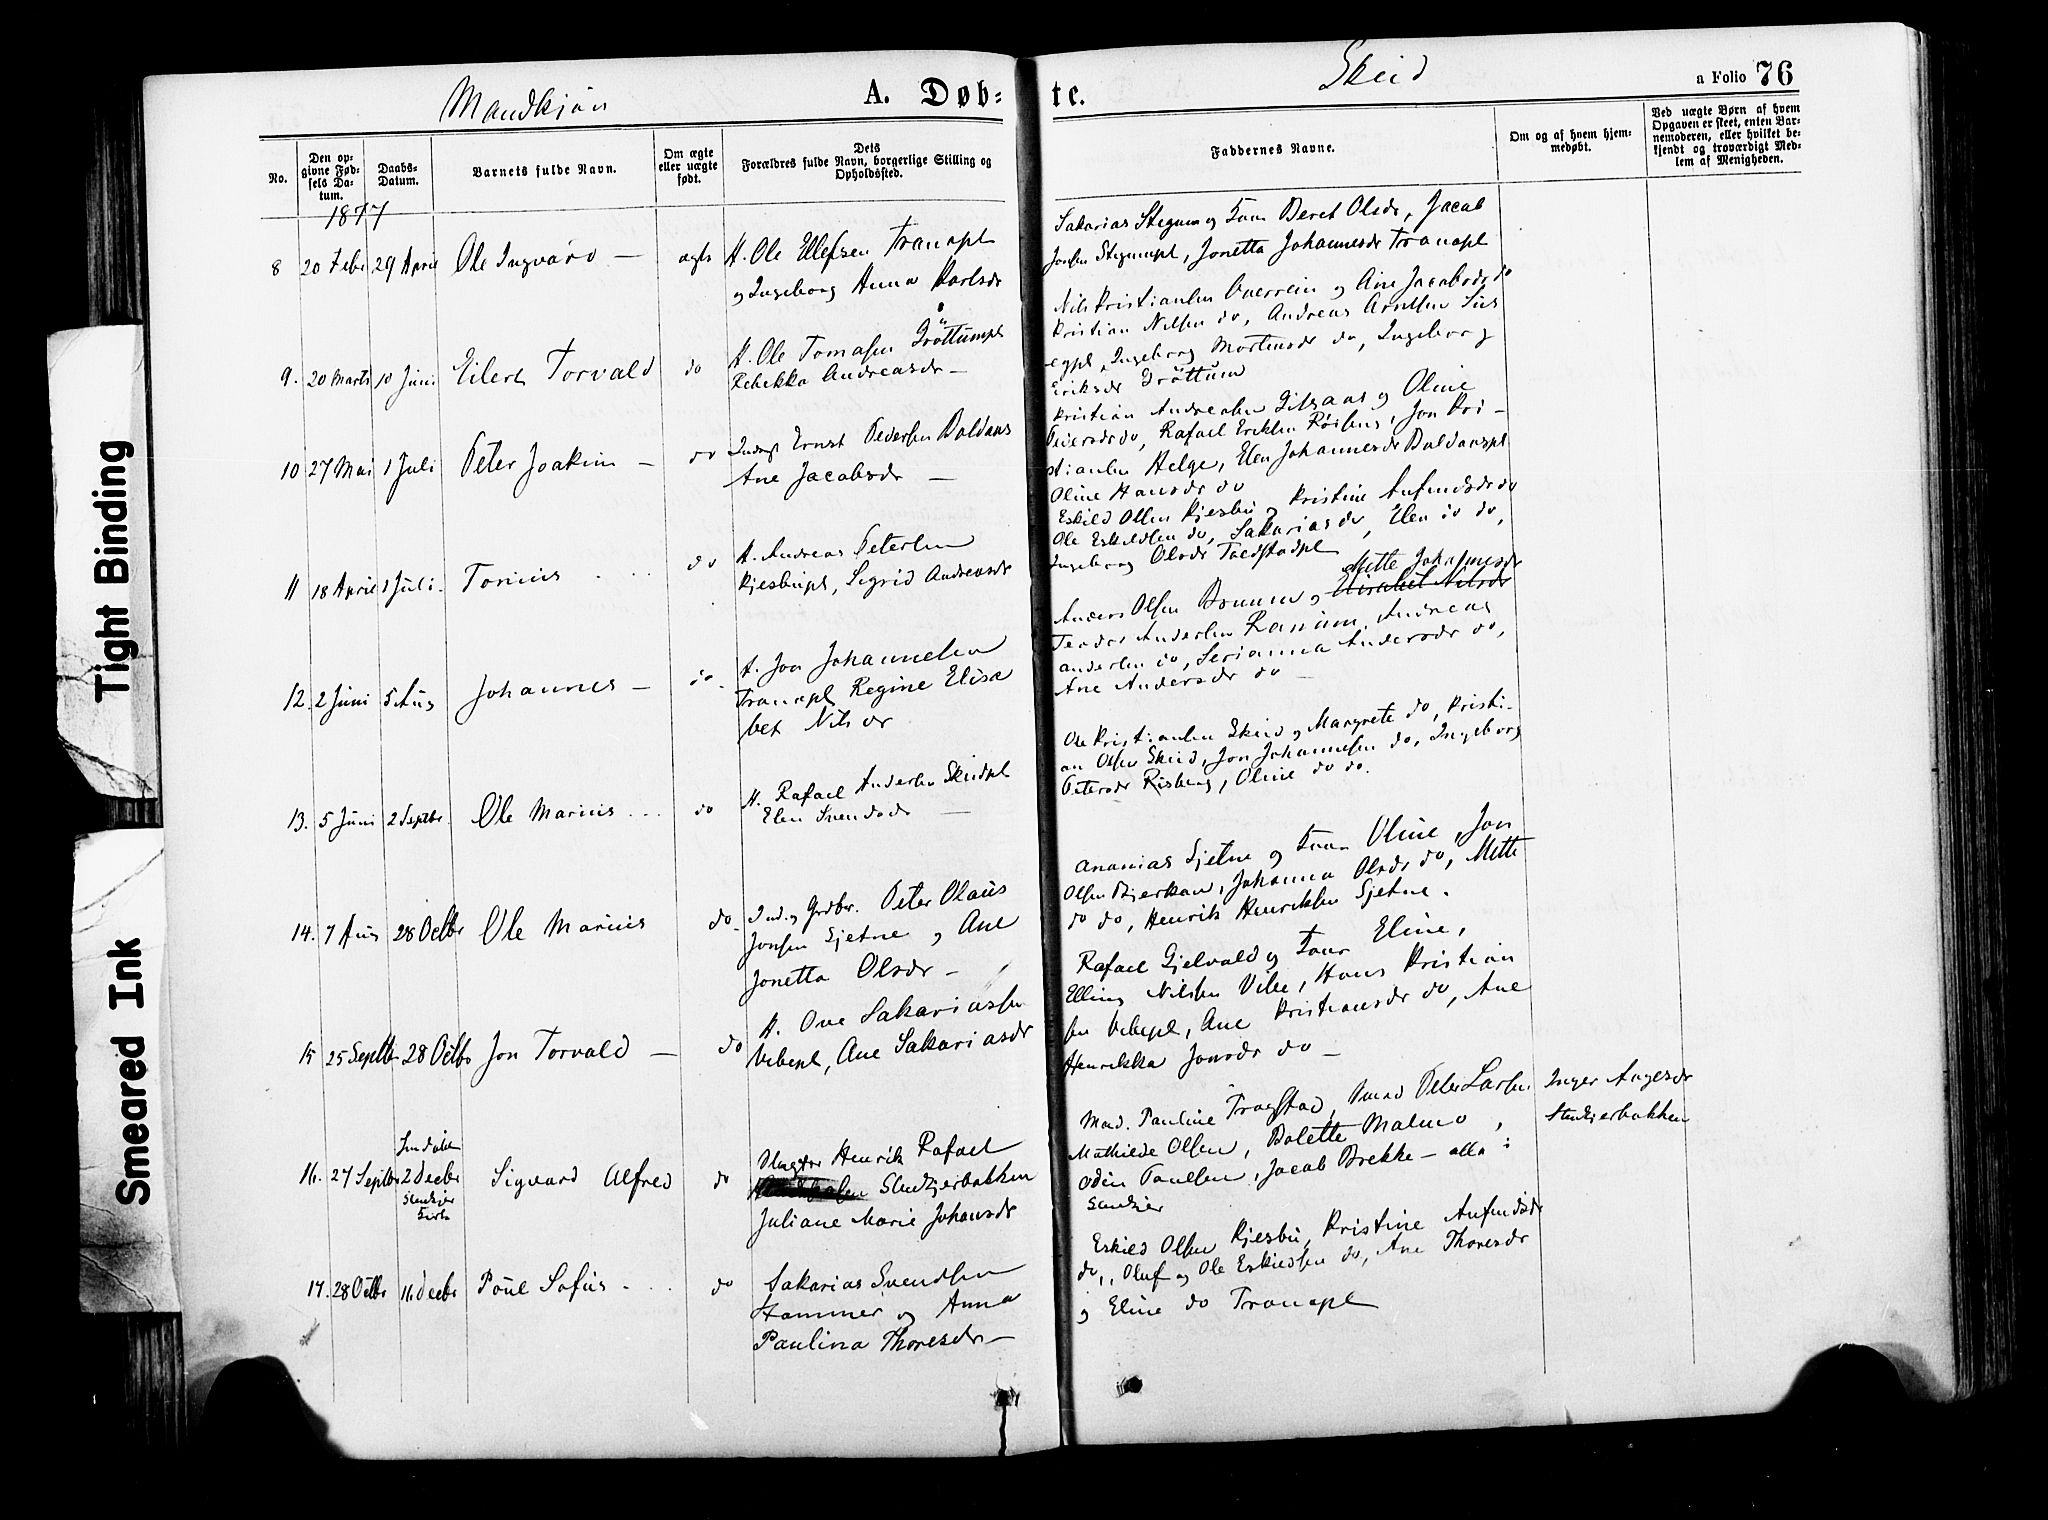 Mandkjøn
A. Døb-
te.
Skeid
a Folio 76
No.
Den op-
givne Fød-
sels Da-
tum.
Daabs-
Datum.
Barnets fulde Navn.
Om ægte
eller uægte
født.
Dets
Forældres fulde Navn, borgerlige Stilling og
Opholdssted.
Faddernes Navne.
Om og af hvem hjem-
medøbt.
Ved uægte Børn af hvem
Opgaven er skeet, enten Bar-
nemoderen, eller hvilket be-
kjendt og troværdigt Med-
lem af Menigheden.
1877
8 20 Febr 29 April Ole Ingvard — ægte
H. Ole Ellefsen Tranapl
og Ingeborg Anna Karlsdr
Sakarias Stegum og Kone Beret Olsdr, Jacob
Jonsen Stegumpl, Jonetta Johannesdr Tranapl
9. 20 Marts 10 Juni Eilert Torvald do
H. Ole Tomasen Grøttumpl
Rebekka Andreasdr —
Nils Kristiansen Overrein og Ane Jacobsdr do
Kristian Nilsen do, Andreas Arntsen Sus
egpl, Ingeborg Mortensdr do, Ingeborg
Eriksdr Grøttum
10 27 Mai 1 Juli Peter Joakim — do
Ernst Pedersen Boldaas
Ane Jacobsdr —
Kristian Andreasen Gilsaas og Oline
Peiersdr do, Rafael Eriksen Røiseng, Jon Kri-
stiansen Helge, Elen Johannesdr Boldaaspl
Oline Hansdr do
11 18 April 1 Juli. Tonius . . . do
H. Andreas Petersen
Kjesbupl, Sigrid Andreasdr
Eskild Olsen Kjesbu og Kristine Anfindsdr do
Ole Eskildsen do, Sakarias do, Elen do do,
Ingeborg Olsdr Tredstadpl
12. 2 Juni 5 Aug Johannes — do.
H. Jon Johannesen
Tranapl Regine Elisa
bet Nilsdr
Mette Johannesdr
Anders Olsen Bomum og Elisabet Nilsdr
Teodor Andersen Ranum, Andreas
Andersen do, Serianna Andersdr do,
Ane Andersdr do —
13. 5 Juni 2 Septbr. Ole Marius . . . do
H. Rafael Andersen Skeidpl
Elen Svendsdr —
Ole Kristiansen Skeid og Margrete do, Kristi-
an Olsen Skeid, Jon Johannesen do, Ingeborg
Petersdr Risberg, Oline do do.
14. 7 Aug 28 Octbr Ole Marius do.
Ind. og Grdbr. Peter Olaus
Jonsen Gjetne og Ane
Jonetta Olsdr —
Ananias Gjetne og Kone Oline, Jon
Olsen Bjerkan, Johanna Olsdr do, Mette
do do, Henrik Henriksen Gjetne.
15 25 Septbr 28 Octbr Jon Torvald — do
H. Ove Sakariassen
Vibepl, Ane Sakariasdr
Rafael Gjelvald og Kone Eline,
Elling Nilsen Vibe, Hans Kristian
sen Vibepl, Ane Kristiansdr do, Ane
Henrikka Jonsdr do —
16. 27 Septbr 2 Decbr Stenkjer Kirke Sigvard Alfred do
Henrik Rafael
Stenkjerbakken
Juliane Marie Johansdr
Mad. Pauline Trogstad, Peter Larsen
Mathilde Olsen, Bolette Malmo,
Odin Paulsen, Jacob Brekke — alle i
Stenkjer
Inger Aagesdr
Stenkjerbakken
17. 28 Octbr 16 Decbr Poul Sofus . . . do
Sakarias Svendsen
Hammer og Anna
Paulina Thoresdr —
Eskild Olsen Kjesbu, Kristine Anfindsdr
do, Oluf og Ole Eskildsen do, Ane Thoresdr
og Eline do Tranapl
Tight Binding
Smeared Ink